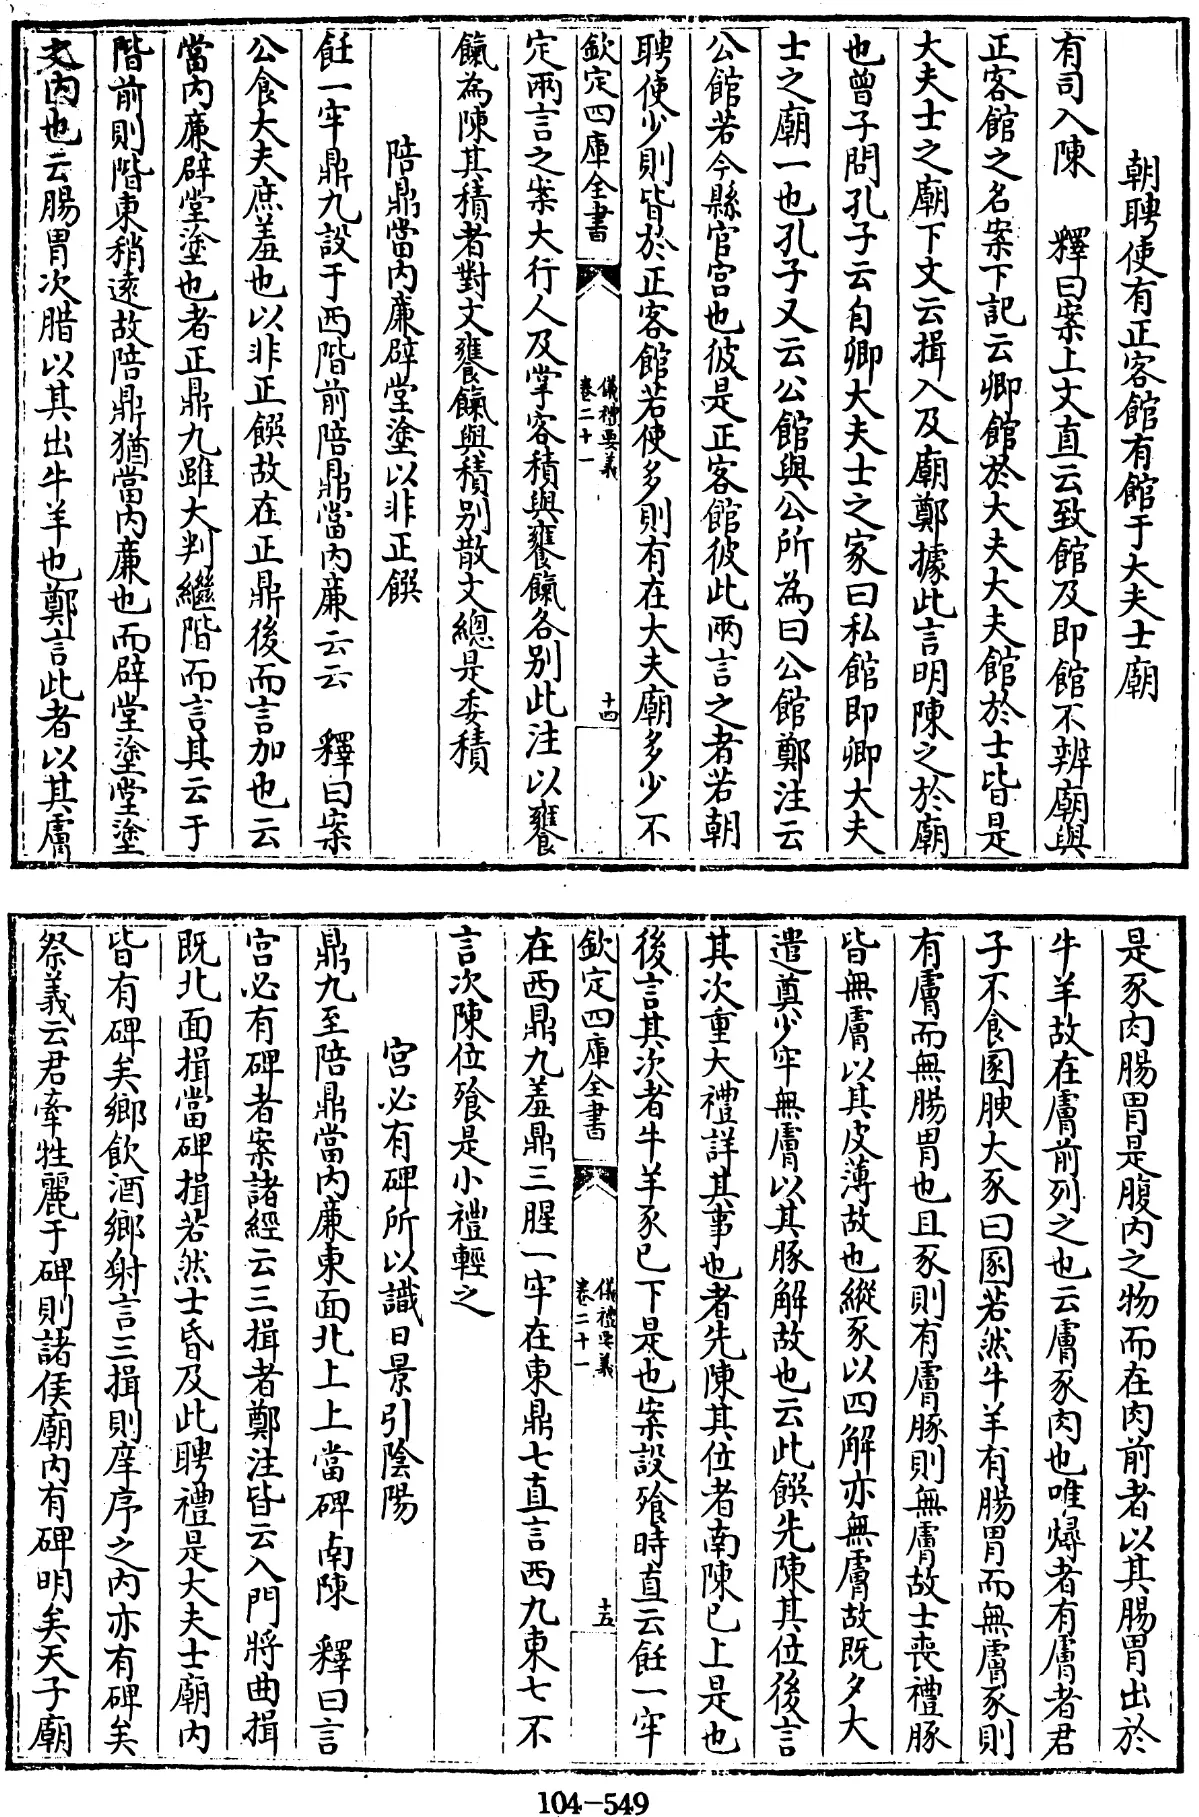 朝聘使有正客館有館于大夫士廟
有司入陳　釋曰案上文直云致館及即館不辨廟與
正客館之名案下記云卿館於大夫大夫館於士皆是
大夫士之廟下文云揖入及廟鄭據此言明陳之於廟
也曾子問孔子云自卿大夫士之家曰私館即卿大夫
士之廟一也孔子又云公館與公所為曰公館鄭注云
公館若今縣官宮也彼是正客館彼此兩言之者若朝
聘使少則皆於正客館若使多則有在大夫廟多少不
欽定四庫全書
儀禮要義
卷二十一
十四
定兩言之案大行人及掌客積與饔餼各別此注以饔
餼為陳其積者對文饔餼與積别散文總是委積
陪鼎當内亷辟堂塗以非正饌
飪一牢鼎九設于西階前陪鼎當内亷云云　釋曰案
公食大夫庶羞也以非正饌故在正鼎後而言加也云
當内亷辟堂塗也者正鼎九雖大判繼階而言其云于
階前則階東稍遠故陪鼎猶當内亷也而辟堂塗堂塗
之内也云腸胃次腊以其出牛羊也鄭言此者以其膚
是豕肉腸胃是腹内之物而在肉前者以其腸胃出於
牛羊故在膚前列之也云膚豕肉也唯燖者有膚者君
子不食圂腴犬豕曰圂若然牛羊有腸胃而無膚豕則
有膚而無腸胃也且豕則有膚豚則無膚故士喪禮豚
皆無膚以其皮薄故也縱豕以四解亦無膚故既夕大
遣奠少牢無膚以其豚解故也云此饌先陳其位後言
其次重大禮詳其事也者先陳其位者南陳已上是也
後言其次者牛羊豕已下是也案設飱時直云飪一牢
欽定四庫全書
儀禮要義
卷二十一
十五
在西鼎九羞鼎三腥一牢在東鼎七直言西九東七不
言次陳位飱是小禮輕之
宮必有碑所以識日景引陰陽
鼎九至陪鼎當内亷東面北上上當碑南陳　釋曰言
宮必有碑者案諸經云三揖者鄭注皆云入門將曲揖
既北面揖當碑揖若然士昏及此聘禮是大夫士廟内
皆有碑矣鄉飲酒鄉射言三揖則庠序之内亦有碑矣
祭義云君牽牲麗于碑則諸侯廟内有碑明矣天子廟
104-549